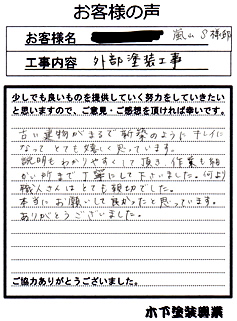 お客様の声
お客様名 嵐山 S様邸
工事内容 外部塗装工事
少しでも良いものを提供していく努力をしていきたい
と思いますので、ご意見・ご感想を頂ければ幸いです。
古い建物がまるで新築のようにキレイに
なって とても嬉しく思っています。
説明もわかりやすくして頂き 作業も細
かい所まで丁寧にして下さいました。何より
職人さんはとても親切でした。
本当にお願いして良かったと思っています。
ありがとうございました。
ご協力ありがとうございました。
木下塗装興業